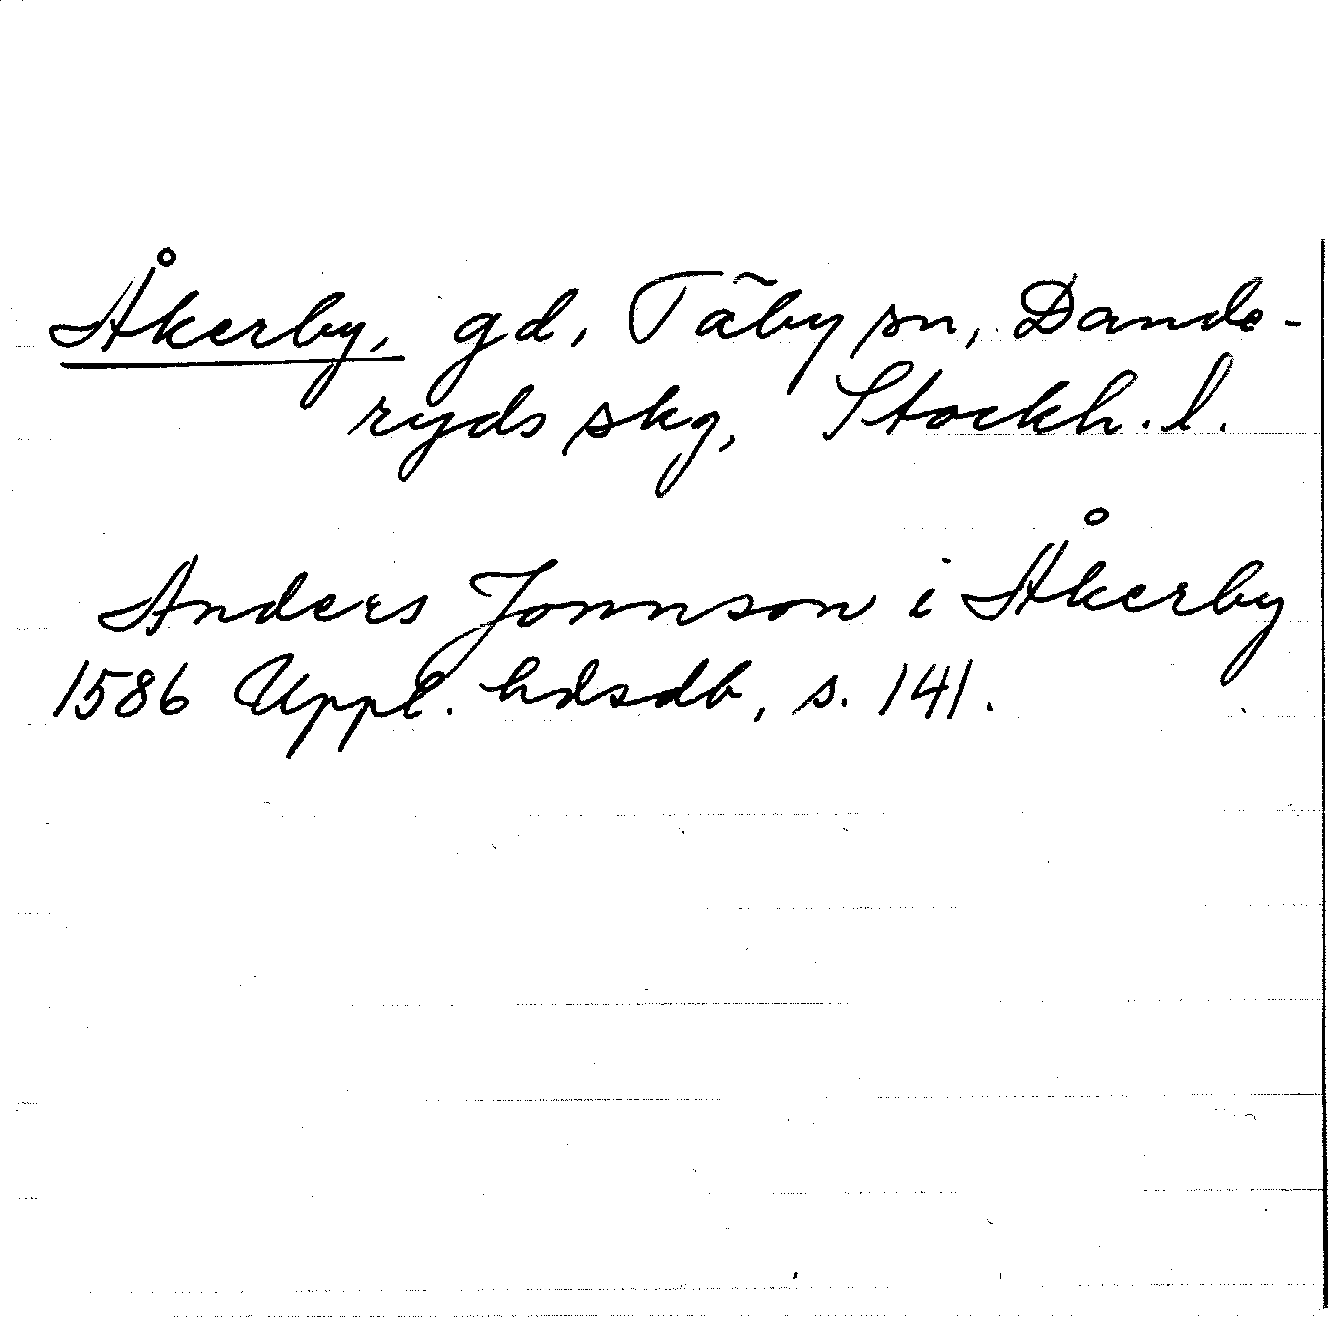 Åkerby, gd, Täby sn, Dande-
ryds skg, Stockh. l.
Anders Jonnson i Åkerby
1586 Uppl. hdsdb, s. 141.